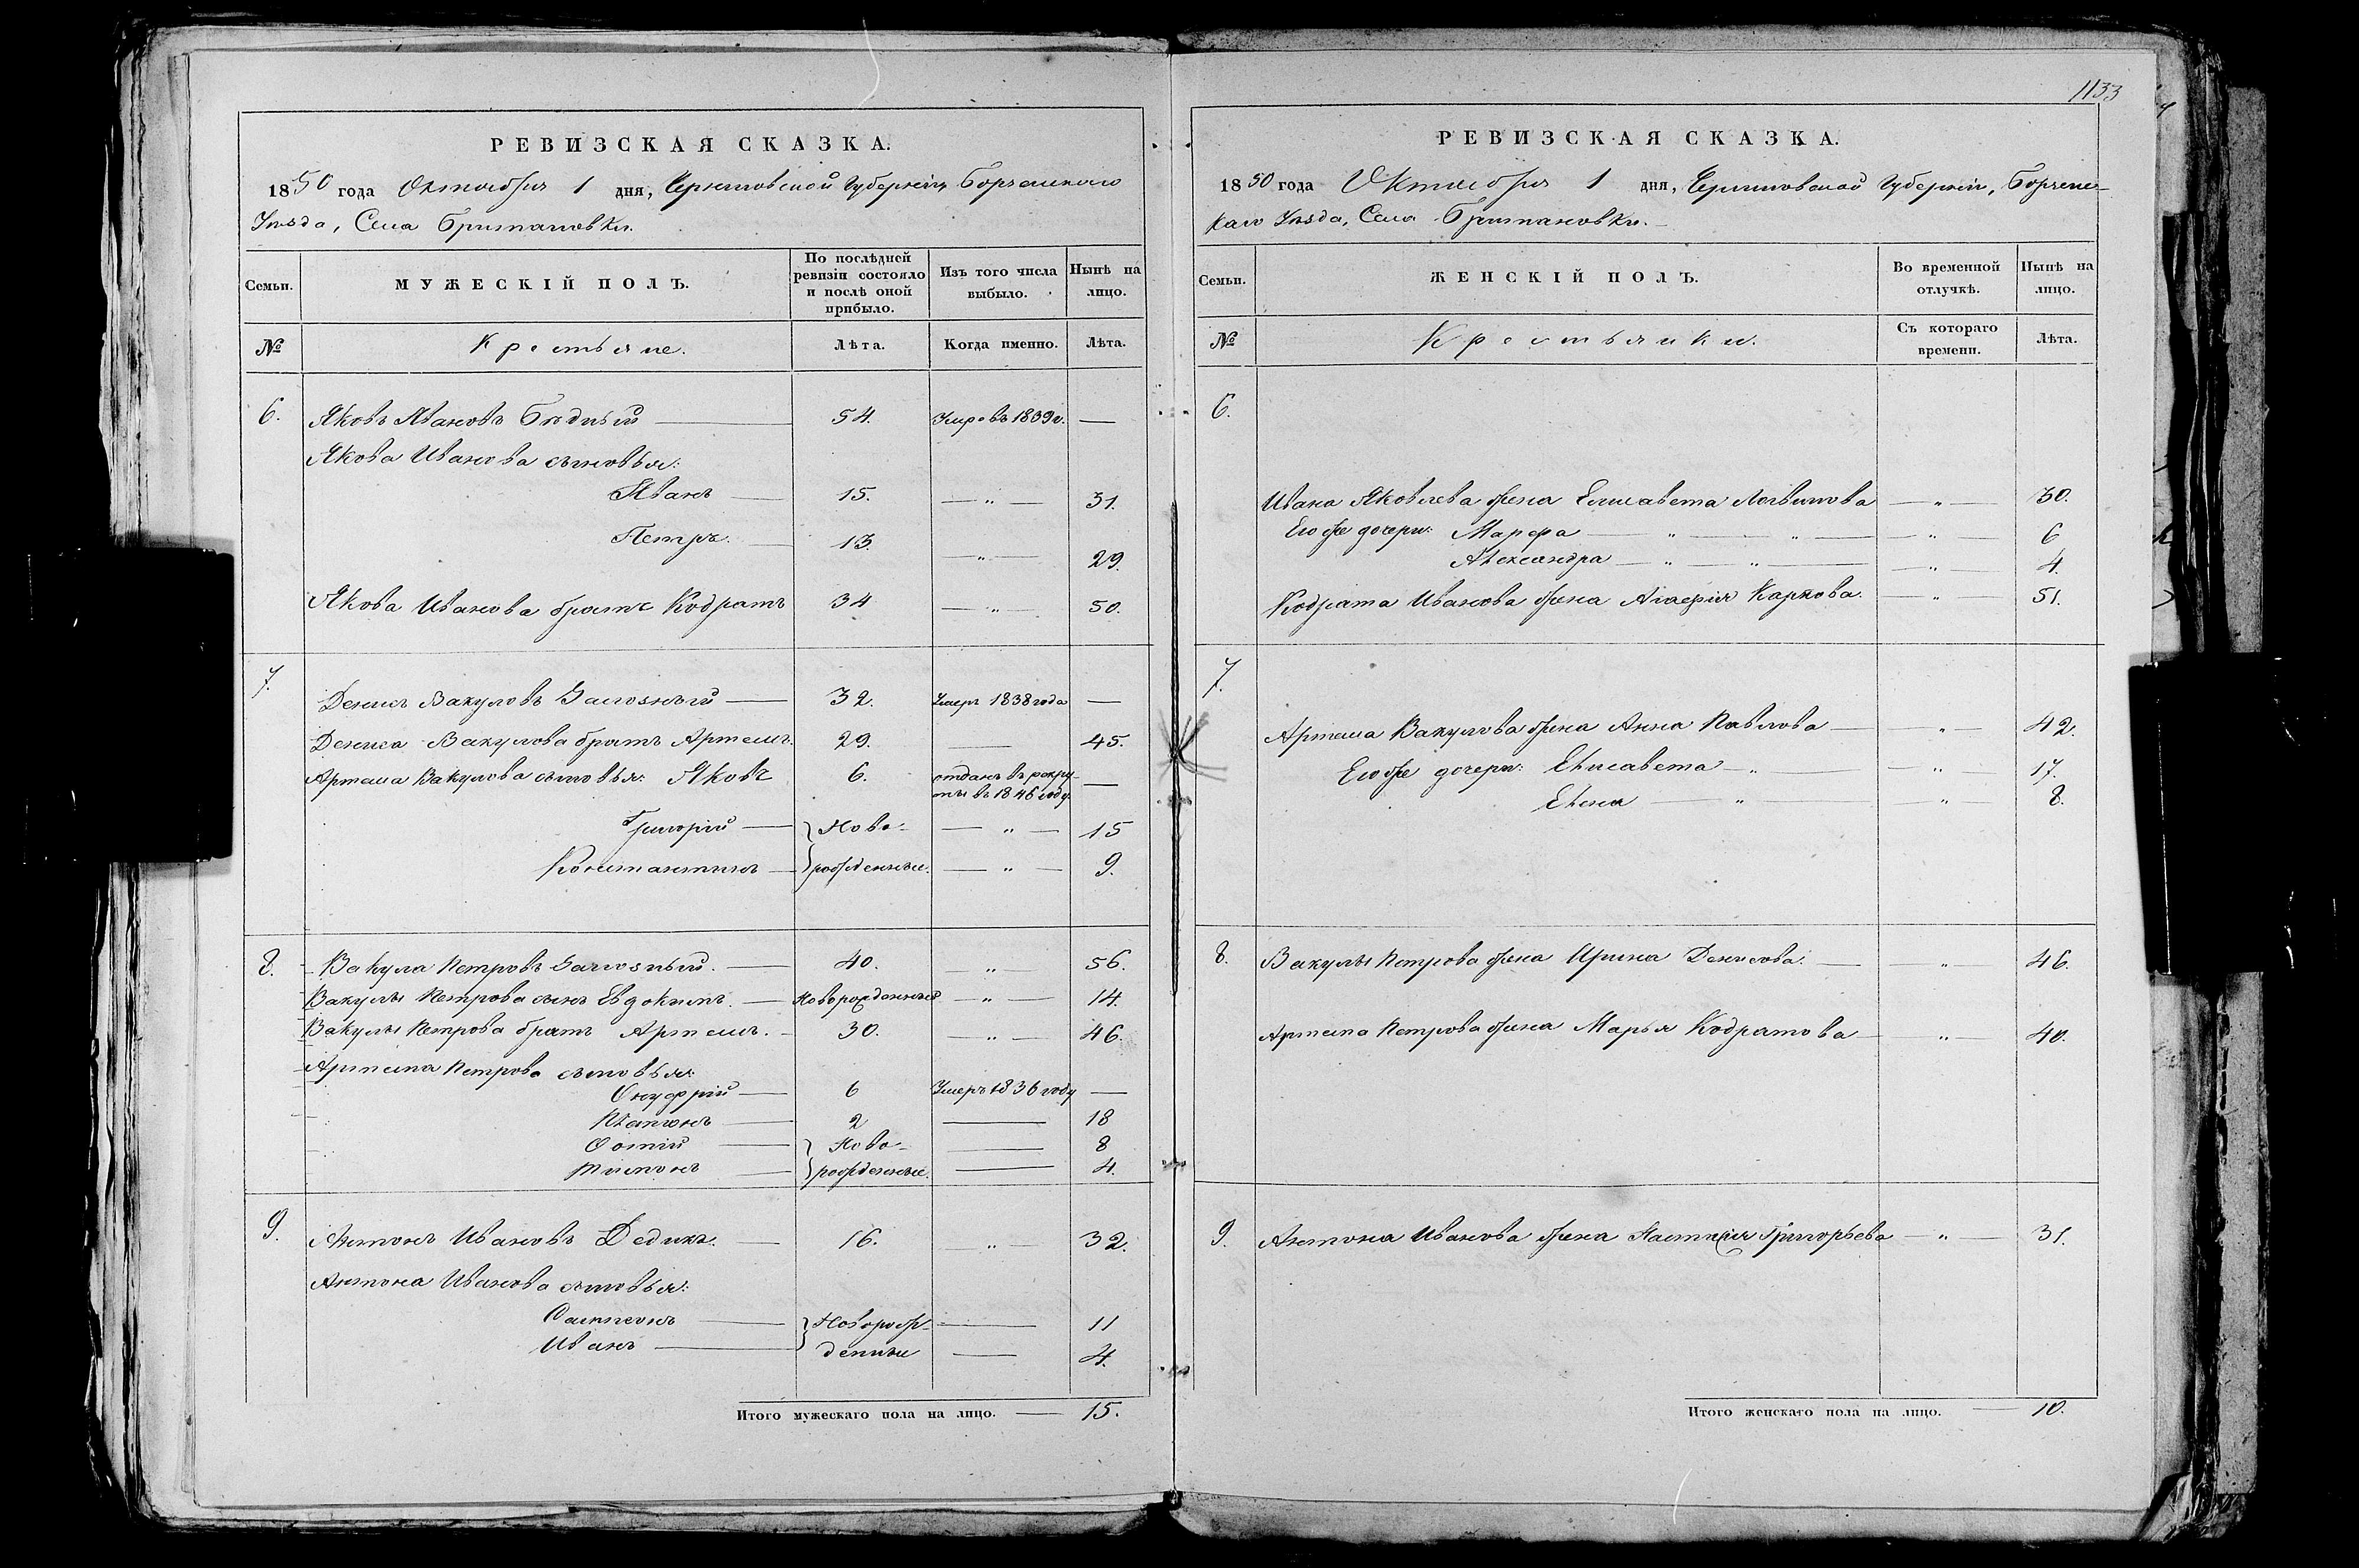 1133
РЕВИЗСКАЯ СКАЗКА.
1850 года Октября 1 дня, Черниговской Губерніи Борзенскаго
Уѣзда, Села Британовки.
Семьи.
МУЖЕСКІЙ ПОЛЪ.
По послѣдней ревизіи состояло и послѣ оной прибыло.
Изъ того числа выбыло.
Нынѣ на лицо.
№
Крестьяне.
Лѣта.
Когда именно.
Лѣта.
6. Яковъ Ивановъ Бѣдный — 54. Умре въ 1839 г. —
Якова Иванова сыновья:
Иванъ — 15. — „ — 31.
Петръ. — 13. — „ — 29.
Якова Иванова братъ Кодратъ 34 — „ — 50.
7. Денисъ Вакуловъ Зализный — 32. Умеръ 1838 года —
Дениса Вакулова братъ Артемъ. 29. — 45.
Артема Вакулова сыновья: Яковъ 6. отданъ въ рекру- —
ты въ 1846 году.
Григорій — Ново- — „ — 15
Константинъ — рожденные. — „ — 9.
8. Вакула Петровъ Зализный. — 40. „ 56.
Вакулы Петрова сынъ Евдокимъ. — Новорожденный — „ — 14.
Вакулы Петрова братъ Артемъ. — 30. — „ — 46.
Артема Петрова сыновья:
Онуфрій — 6 Умеръ 1836 году —
Платонъ — 2 — 18
Фотій — Ново- — 8
Тимонъ — рожденные. — 4.
9. Антонъ Ивановъ Дедикъ. — 16. „ 32.
Антона Иванова сыновья:
— Новорож- — 11
Иванъ — денные — 4.
Итого мужескаго пола на лицо. — 15.
РЕВИЗСКАЯ СКАЗКА.
1850 года Октября 1 дня, Черниговской Губерніи, Борзенс-
каго Уѣзда, Села Британовки.
Семьи.
ЖЕНСКІЙ ПОЛЪ.
Во временной отлучкѣ.
Нынѣ на лицо.
№
Крестьянки.
Съ котораго времени.
Лѣта.
6.
Ивана Яковлева жена Елисавета Логвинова — „ — 30.
Его же дочери: Марфа — „ — „ — „ 6
Александра — „ — „ — — „ 4.
Кодрата Иванова жена Агафія Карпова. — „ 51.
7.
Артема Вакулова жена Анна Павлова — „ — 42.
Его же дочери: Елисавета — „ — „ — 17.
Елена — „ — „ — 8.
8. Вакулы Петрова жена Ирина Денисова. — „ — 46.
Артема Петрова жена Марья Кодратова — „ — 40.
9. Антона Иванова жена Настасія Григорьева — „ — 31.
Итого женскаго пола на лицо. — 10.